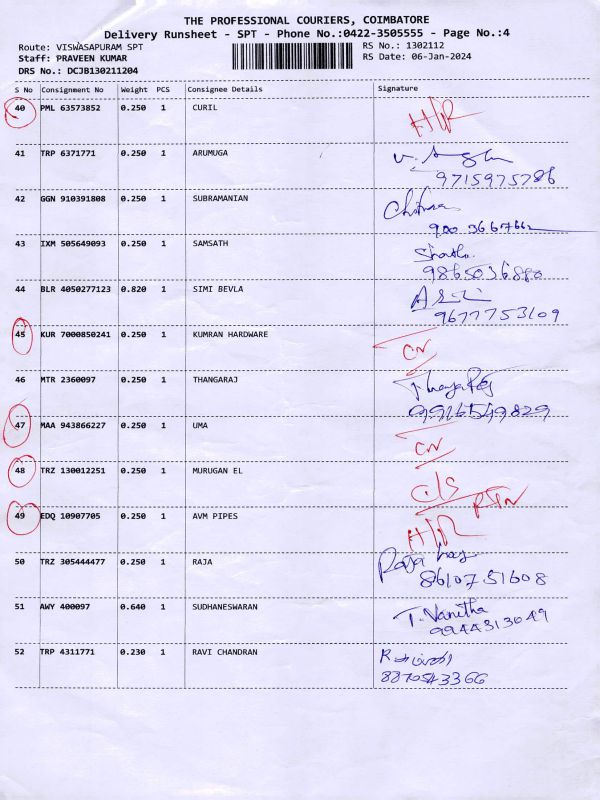 THE PROFESSIONAL COURIERS, COIMBATORE
Delivery Runsheet - SPT - Phone No.:0422-3505555 - Page No.:4
Route: VISWASAPURAM SPT
RS No.: 1302112
Staff: PRAVEEN KUMAR
RS Date: 06-Jan-2024
DRS No.: DCJB130211204
S No Consignment No Weight PCS Consignee Details Signature
40 PML 63573852 0.250 1 CURIL H/R
41 TRP 6371771 0.250 1 ARUMUGA
9715975786
42 GGN 910391808 0.250 1 SUBRAMANIAN Chitra
43 IXM 505649093 0.250 1 SAMSATH
9865036880
44 BLR 4050277123 0.820 1 SIMI BEVLA
9677753109
45 KUR 7000850241 0.250 1 KUMRAN HARDWARE
CN
46 MTR 2360097 0.250 1 THANGARAJ
9916549829
47 MAA 943866227 0.250 1 UMA
CN
48 TRZ 130012251 0.250 1 MURUGAN EL
49 EDQ 10907705 0.250 1 AVM PIPES H/R
50 TRZ 305444477 0.250 1 RAJA Raja
8610731608
51 AWY 400097 0.640 1 SUDHANESWARAN T. Vanitha
9944313049
52 TRP 4311771 0.230 1 RAVI CHANDRAN
8870543366